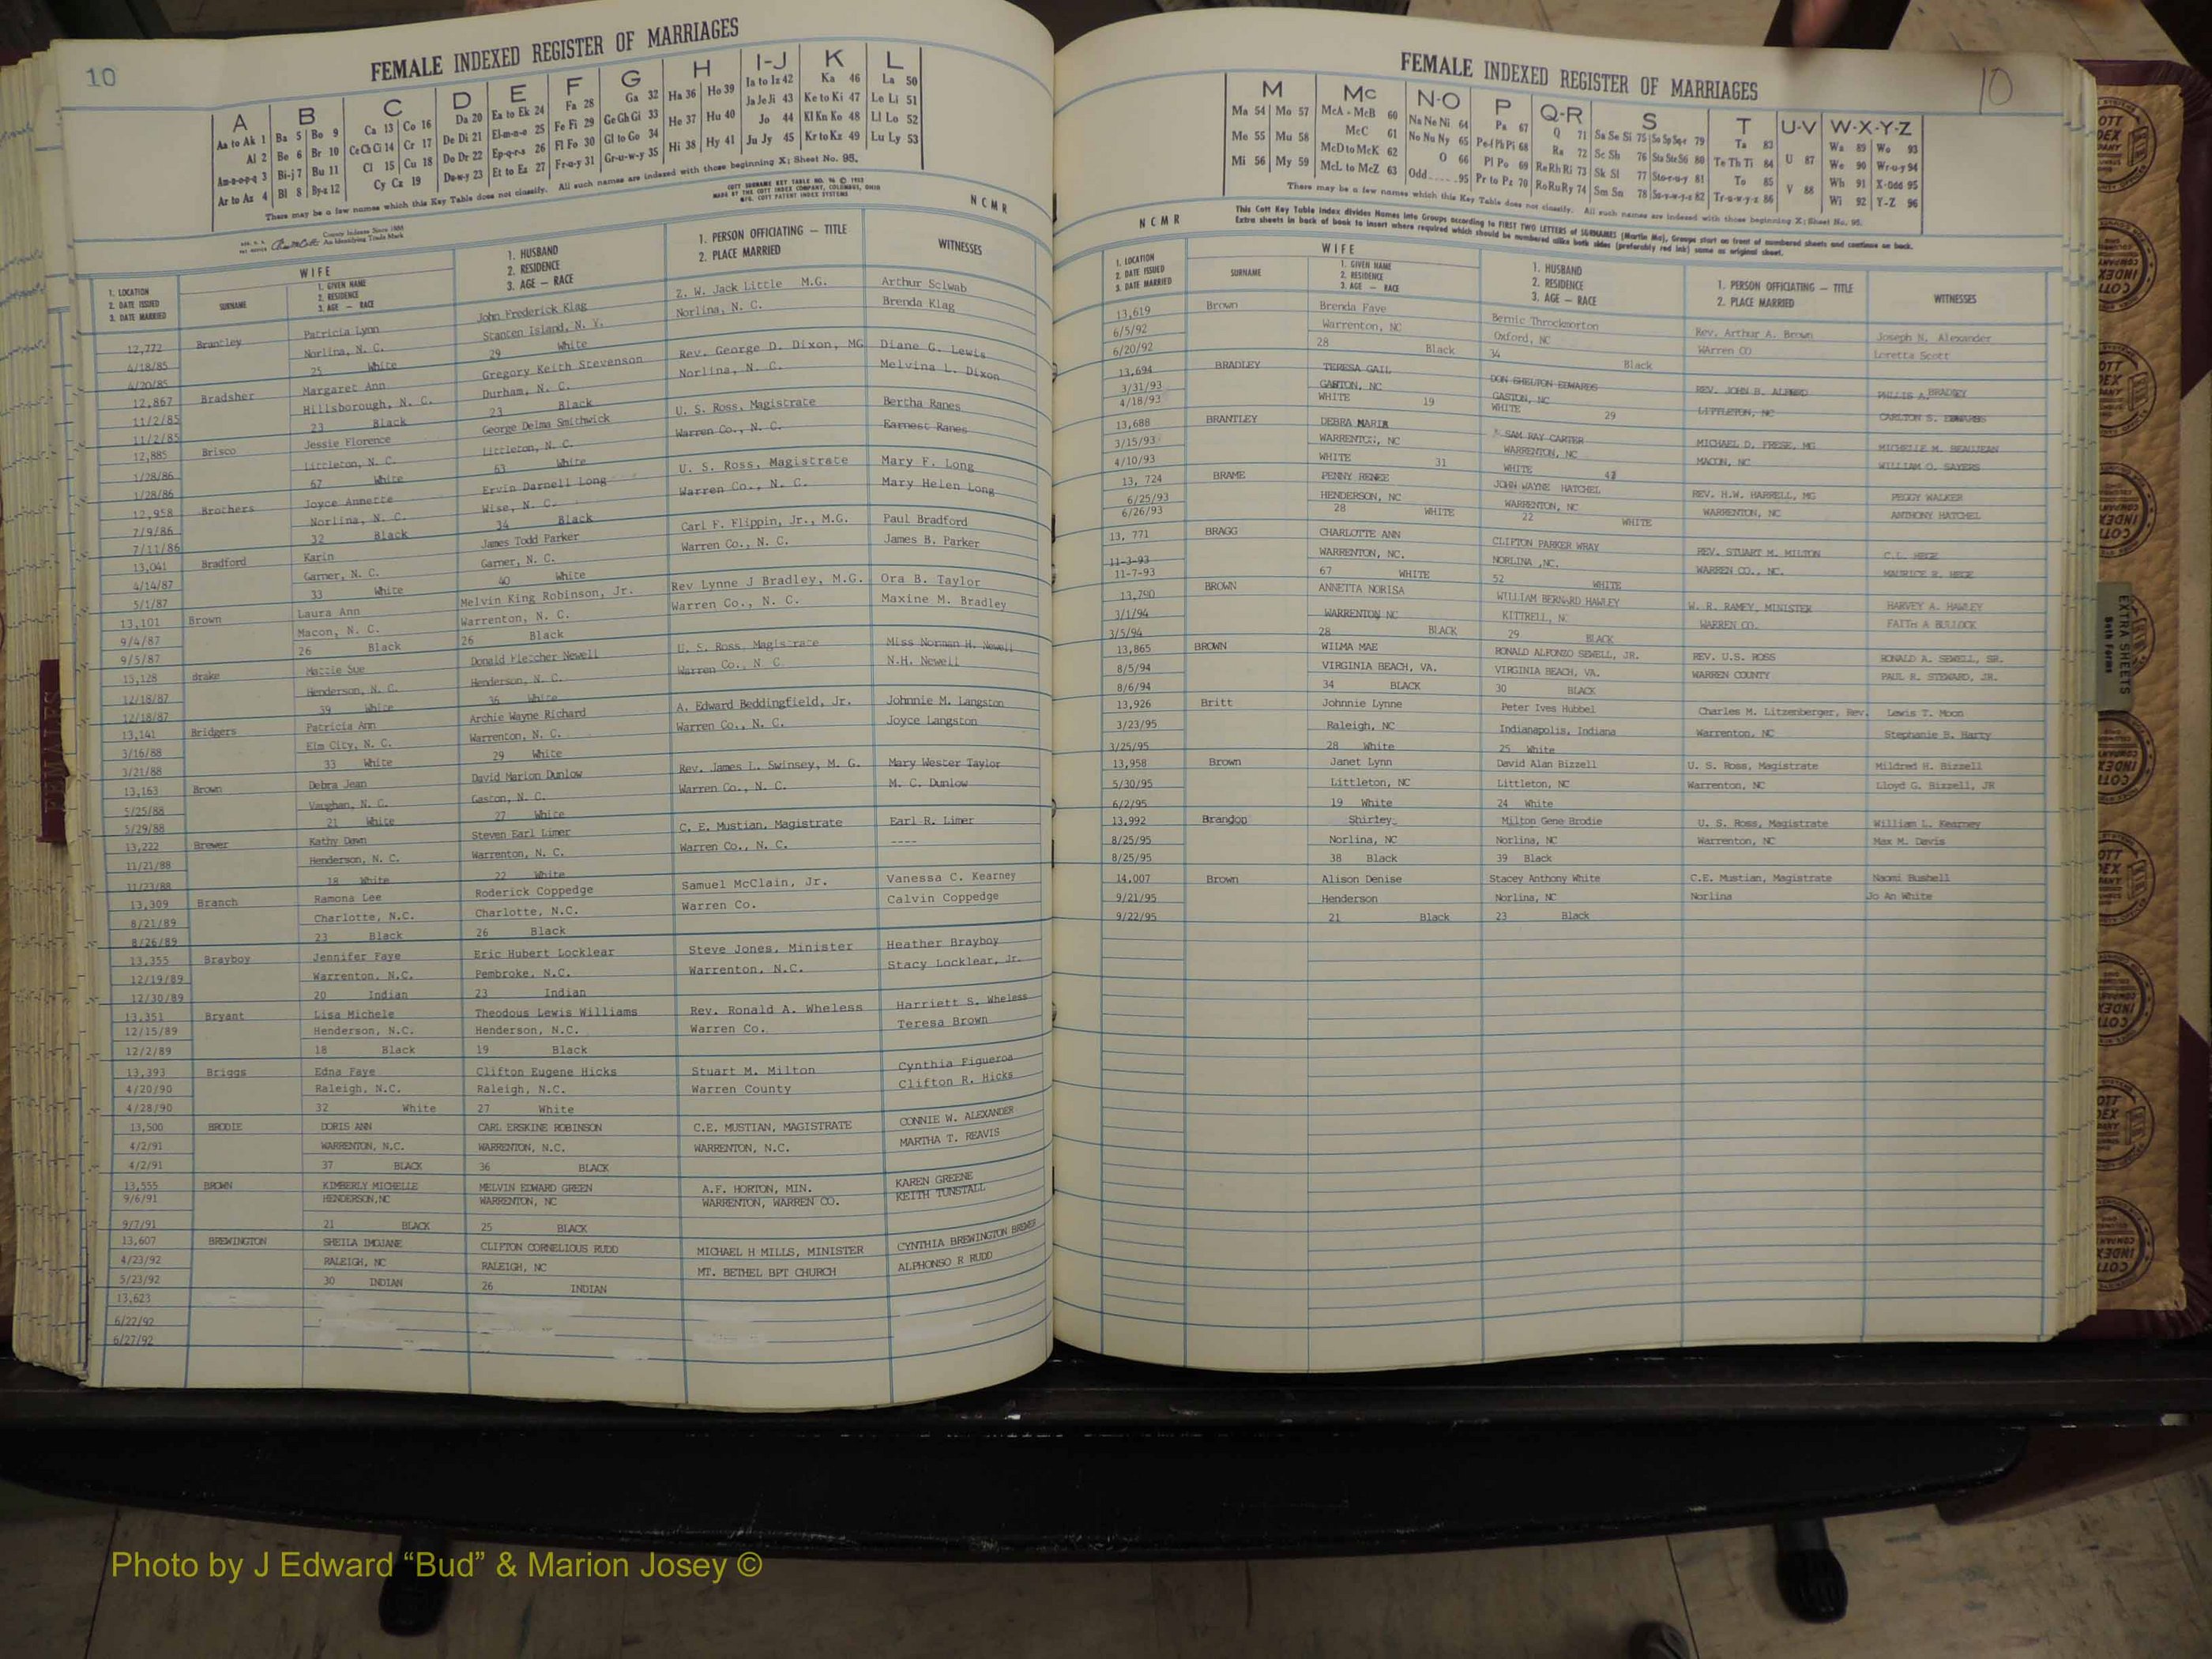 10
FEMALE INDEXED REGISTER OF MARRIAGES
A B C D E F G H I-J K L
Aa to Ak 1 Ba 5 Bo 9 Ca 13 Co 16 Da 20 Ea to Ek 24 Fa 28 Ga 32 Ha 36 Ho 39 Ia to Iz 42 Ka 46 La 50
Al 2 Be 6 Br 10 Ce Ch Ci 14 Cr 17 De Di 21 El-m-n-o 25 Fe Fi 29 Ge Gh Gi 33 He 37 Hu 40 Ja Je Ji 43 Ke to Ki 47 Le Li 51
Am-n-o-p-q 3 Bi-j 7 Bu 11 Cl 15 Cu 18 Do Dr 22 Ep-q-r-s 26 Fl Fo 30 Gl to Go 34 Hi 38 Hy 41 Jo 44 Kl Kn Ko 48 Ll Lo 52
Ar to Az 4 Bl 8 By-z 12 Cy Cz 19 Du-w-y 23 Et to Ez 27 Fr-u-y 31 Gr-u-w-y 35 Ju Jy 45 Kr to Kz 49 Lu Ly 53
There may be a few names which this Key Table does not classify. All such names are indexed with those beginning X; Sheet No. 95.
COTT SURNAME KEY TABLE NO. 96 © 1953
MADE BY THE COTT INDEX COMPANY, COLUMBUS, OHIO
MFG. COTT PATENT INDEX SYSTEMS
County Indexes Since 1888
An Identifying Trade Mark
N C M R
1. LOCATION 2. DATE ISSUED 3. DATE MARRIED
WIFE
SURNAME
1. GIVEN NAME 2. RESIDENCE 3. AGE — RACE
1. HUSBAND 2. RESIDENCE 3. AGE — RACE
1. PERSON OFFICIATING — TITLE 2. PLACE MARRIED
WITNESSES
12,772 Brantley Patricia Lynn John Frederick Klag Z. W. Jack Little M.G. Arthur Sclwab
4/18/85 Norlina, N. C. Stanten Island, N. Y. Norlina, N. C. Brenda Klag
4/20/85 25 White 29 White
12,867 Bradsher Margaret Ann Gregory Keith Stevenson Rev. George D. Dixon, MG Diane G. Lewis
11/2/85 Hillsborough, N. C. Durham, N. C. Norlina, N. C. Melvina L. Dixon
11/2/85 23 Black 23 Black
12,885 Brisco Jessie Florence George Delma Smithwick U. S. Ross, Magistrate Bertha Ranes
1/28/86 Littleton, N. C. Littleton, N. C. Warren Co., N. C. Earnest Ranes
1/28/86 67 White 63 White
12,958 Brothers Joyce Annette Ervin Darnell Long U. S. Ross, Magistrate Mary F. Long
7/9/86 Norlina, N. C. Wise, N. C. Warren Co., N. C. Mary Helen Long
7/11/86 32 Black 34 Black
13,041 Bradford Karin James Todd Parker Carl F. Flippin, Jr., M.G. Paul Bradford
4/14/87 Garner, N. C. Garner, N. C. Warren Co., N. C. James B. Parker
5/1/87 33 White 40 White
13,101 Brown Laura Ann Melvin King Robinson, Jr. Rev Lynne J Bradley, M.G. Ora B. Taylor
9/4/87 Macon, N. C. Warrenton, N. C. Warren Co., N. C. Maxine M. Bradley
9/5/87 26 Black 26 Black
15,128 drake Mattie Sue Donald Fletcher Newell U. S. Ross, Magistrate Miss Norman H. Newell
12/18/87 Henderson, N. C. Henderson, N. C. Warren Co., N. C N.H. Newell
12/18/87 39 White 36 White
13,141 Bridgers Patricia Ann Archie Wayne Richard A. Edward Beddingfield, Jr. Johnnie M. Langston
3/16/88 Elm City, N. C. Warrenton, N. C. Warren Co., N. C. Joyce Langston
3/21/88 33 White 29 White
13,163 Brown Debra Jean David Marion Dunlow Rev. James L. Swinsey, M. G. Mary Wester Taylor
5/25/88 Vaughan, N. C. Gaston, N. C. Warren Co., N. C. M. C. Dunlow
5/29/88 21 White 27 White
13,222 Brewer Kathy Dawn Steven Earl Limer C. E. Mustian, Magistrate Earl R. Limer
11/21/88 Henderson, N. C. Warrenton, N. C. Warren Co., N. C. ----
11/23/88 18 White 22 White
13,309 Branch Ramona Lee Roderick Coppedge Samuel McClain, Jr. Vanessa C. Kearney
8/21/89 Charlotte, N.C. Charlotte, N.C. Warren Co. Calvin Coppedge
8/26/89 23 Black 26 Black
13,355 Brayboy Jennifer Faye Eric Hubert Locklear Steve Jones, Minister Heather Brayboy
12/19/89 Warrenton, N.C. Pembroke, N.C. Warrenton, N.C. Stacy Locklear, Jr.
12/30/89 20 Indian 23 Indian
13,351 Bryant Lisa Michele Theodous Lewis Williams Rev. Ronald A. Wheless Harriett S. Wheless
12/15/89 Henderson, N.C. Henderson, N.C. Warren Co. Teresa Brown
12/2/89 18 Black 19 Black
13,393 Briggs Edna Faye Clifton Eugene Hicks Stuart M. Milton Cynthia Figueroa
4/20/90 Raleigh, N.C. Raleigh, N.C. Warren County Clifton R. Hicks
4/28/90 32 White 27 White
13,500 BRODIE DORIS ANN CARL ERSKINE ROBINSON C.E. MUSTIAN, MAGISTRATE CONNIE W. ALEXANDER
4/2/91 WARRENTON, N.C. WARRENTON, N.C. WARRENTON, N.C. MARTHA T. REAVIS
4/2/91 37 BLACK 36 BLACK
13,555 BROWN KIMBERLY MICHELLE MELVIN EDWARD GREEN A.F. HORTON, MIN. KAREN GREENE
9/6/91 HENDERSON,NC WARRENTON, NC WARRENTON, WARREN CO. KEITH TUNSTALL
9/7/91 21 BLACK 25 BLACK
13,607 BREWINGTON SHEILA IMOJANE CLIFTON CORNELIOUS RUDD MICHAEL H MILLS, MINISTER CYNTHIA BREWINGTON BREWER
4/23/92 RALEIGH, NC RALEIGH, NC MT. BETHEL BPT CHURCH ALPHONSO R RUDD
5/23/92 30 INDIAN 26 INDIAN
13,623
6/22/92
6/27/92
FEMALE INDEXED REGISTER OF MARRIAGES
10
M Mc N-O P Q-R S T U-V W-X-Y-Z
Ma 54 Mo 57 McA - McB 60 Na Ne Ni 64 Pa 67 Q 71 Sa Se Si 75 So Sp Sq-r 79 Ta 83 Wa 89 Wo 93
Me 55 Mu 58 McC 61 No Nu Ny 65 Pe-f Ph Pi 68 Ra 72 Sc Sh 76 Sta Ste Sti 80 Te Th Ti 84 U 87 We 90 Wr-u-y 94
Mi 56 My 59 McD to McK 62 O 66 Pl Po 69 Re Rh Ri 73 Sk Sl 77 Sto-r-u-y 81 To 85 V 88 Wh 91 X-Odd 95
McL to McZ 63 Odd.....95 Pr to Pz 70 Ro Ru Ry 74 Sm Sn 78 Su-v-w-y-z 82 Tr-u-w-y-z 86 Wi 92 Y-Z 96
There may be a few names which this Key Table does not classify. All such names are indexed with those beginning X; Sheet No. 95.
N C M R
This Cott Key Table Index divides Names into Groups according to FIRST TWO LETTERS of SURNAMES (Martin Ma). Groups start on front of numbered sheets and continue on back.
Extra sheets in back of book to insert where required which should be numbered alike both sides (preferably red ink) same as original sheet.
1. LOCATION 2. DATE ISSUED 3. DATE MARRIED
WIFE
SURNAME
1. GIVEN NAME 2. RESIDENCE 3. AGE — RACE
1. HUSBAND 2. RESIDENCE 3. AGE — RACE
1. PERSON OFFICIATING — TITLE 2. PLACE MARRIED
WITNESSES
13,619 Brown Brenda Faye Bernic Throckmorton Rev. Arthur A. Brown Joseph N. Alexander
6/5/92 Warrenton, NC Oxford, NC Warren CO Loretta Scott
6/20/92 28 Black 34 Black
13,694 BRADLEY TERESA GAIL DON SHELTON EDWARDS REV. JOHN B. ALFORD PHILLIS A. BRADLEY
3/31/93 GASTON, NC GASTON, NC LITTLETON, NC CARLTON S. EDWARDS
4/18/93 WHITE 19 WHITE 29
13,688 BRANTLEY DEBRA MARIA SAM RAY CARTER MICHAEL D. FRESE, MG MICHELLE M. BEAUJEAN
3/15/93 WARRENTON, NC WARRENTON, NC MACON, NC WILLIAM O. SAYERS
4/10/93 WHITE 31 WHITE
13, 724 BRAME PENNY RENEE JOHN WAYNE HATCHEL REV. H.W. HARRELL, MG PEGGY WALKER
6/25/93 HENDERSON, NC WARRENTON, NC WARRENTON, NC ANTHONY HATCHEL
6/26/93 28 WHITE 22 WHITE
13, 771 BRAGG CHARLOTTE ANN CLIFTON PARKER WRAY REV. STUART M. MILTON C.L. HEGE
11-3-93 WARRENTON, NC. NORLINA ,NC. WARREN CO., NC. MAURICE R. HEGE
11-7-93 67 WHITE 52 WHITE
13,790 BROWN ANNETTA NORISA WILLIAM BERNARD HAWLEY W. R. RAMEY, MINISTER HARVEY A. HAWLEY
3/1/94 WARRENTON NC KITTRELL, NC WARREN CO. FAITH A BULLOCK
3/5/94 28 BLACK 29 BLACK
13,865 BROWN WILMA MAE RONALD ALFONZO SEWELL, JR. REV. U.S. ROSS RONALD A. SEWELL, SR.
8/5/94 VIRGINIA BEACH, VA. VIRGINIA BEACH, VA. WARREN COUNTY PAUL R. STEWARD, JR.
8/6/94 34 BLACK 30 BLACK
13,926 Britt Johnnie Lynne Peter Ives Hubbel Charles M. Litzenberger, Rev. Lewis T. Moon
3/23/95 Raleigh, NC Indianapolis, Indiana Warrenton, NC Stephanie B. Harty
3/25/95 28 White 25 White
13,958 Brown Janet Lynn David Alan Bizzell U. S. Ross, Magistrate Mildred H. Bizzell
5/30/95 Littleton, NC Littleton, NC Warrenton, NC Lloyd G. Bizzell, JR
6/2/95 19 White 24 White
13,992 Brandon Shirley Milton Gene Brodie U. S. Ross, Magistrate William L. Kearney
8/25/95 Norlina, NC Norlina, NC Warrenton, NC Max M. Davis
8/25/95 38 Black 39 Black
14,007 Brown Alison Denise Stacey Anthony White C.E. Mustian, Magistrate Naomi Bushell
9/21/95 Henderson Norlina, NC Norlina Jo An White
9/22/95 21 Black 23 Black
FEMALES
EXTRA SHEETS
Both Forms
Photo by J Edward “Bud” & Marion Josey ©